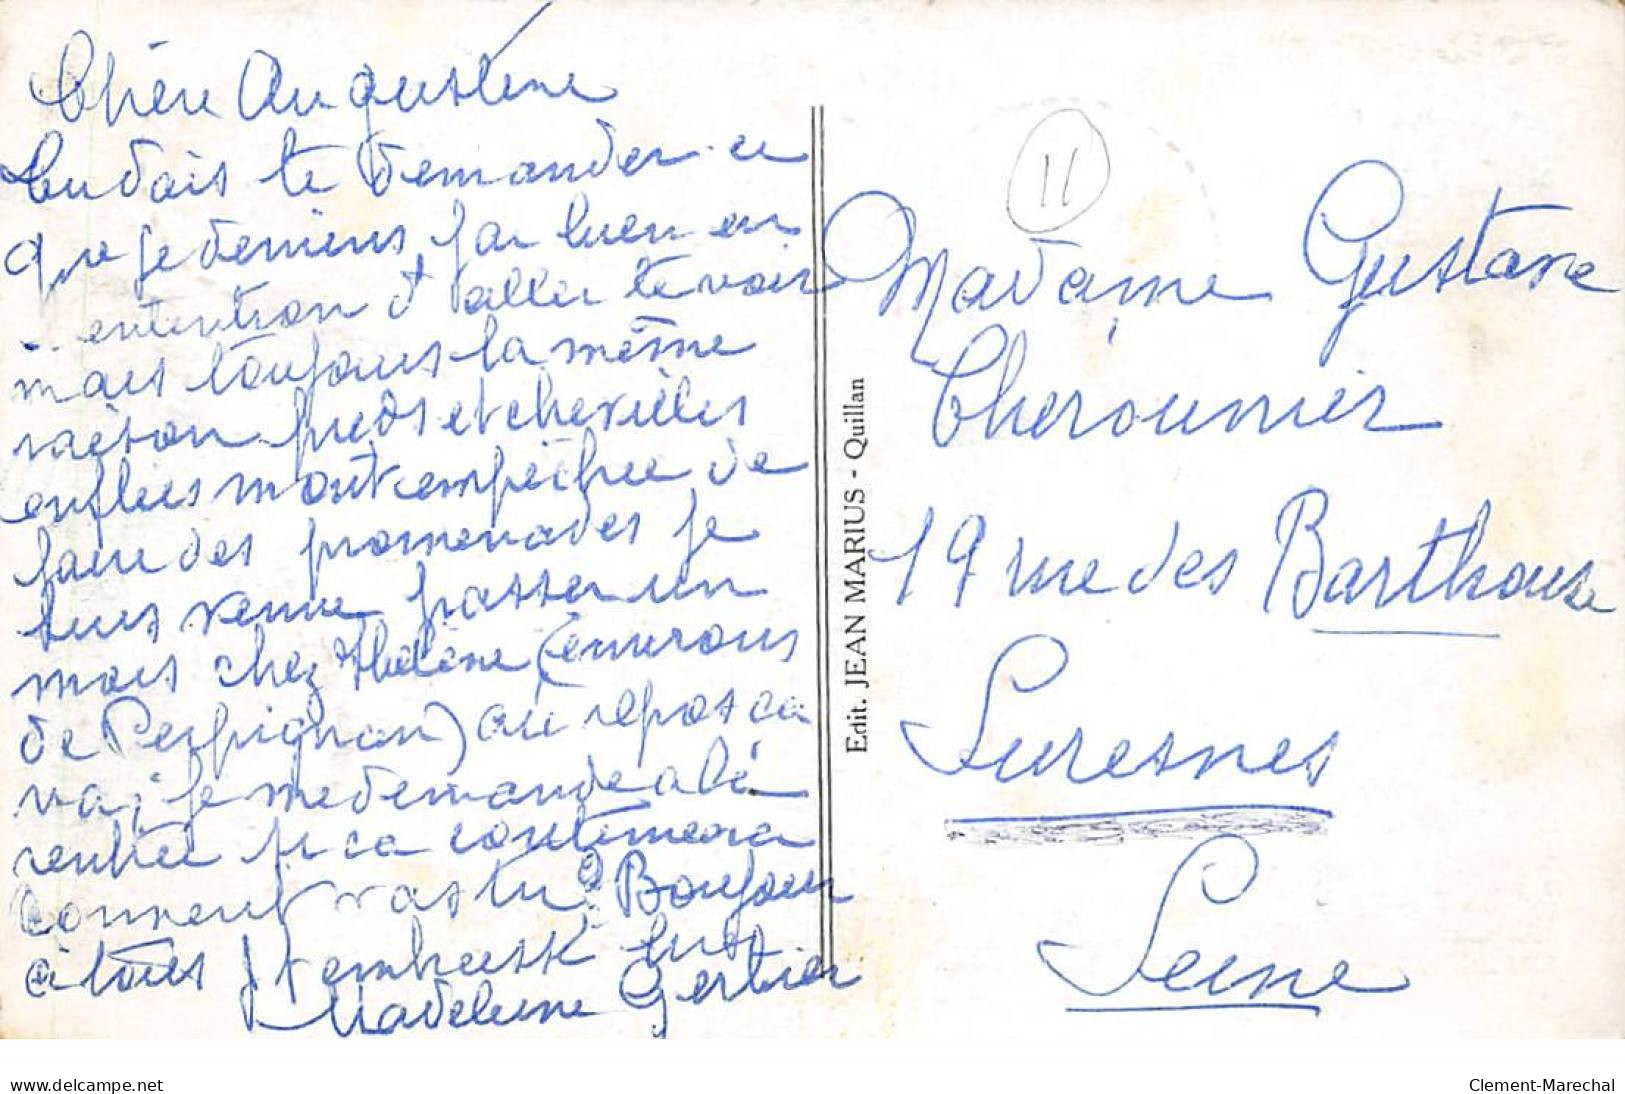 Chère Augustine
tu dois te demander ce
que je deviens, j'ai bien eu
entention d'aller te voir
mais toujours la même
raison pieds et chevilles
enflées m'ont empêchée de
faire des promenades je
suis venue passer un
mois chez Hélène (environs
de Perpignan) au repos ca
va, je me demande a la
rentrée si ca continuera
Comment vas tu? Bonjour
a tous Je t'embrasse
Madeleine Gerbier
11
Madame Gustave
Cherounier
19 rue des Barthoux
Suresnes
Seine
Edit. JEAN MARIUS - Quillan
delcampe.net
Clement-Marechal